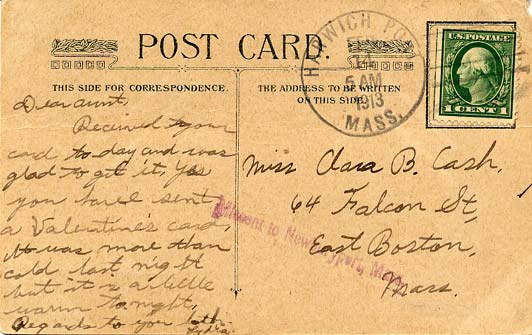 POST CARD.
THIS SIDE FOR CORRESPONDENCE.
THE ADDRESS TO BE WRITTEN
ON THIS SIDE.
HARWICH PORT
5 AM
1913
MASS.
U.S. POSTAGE
1 CENT 1
Dear aunt,
Received your
card to-day and was
glad to get it, Yes
you have sent
a Valentine's card,
It was more than
cold last night
but it is a little
warm tonight,
Regards to you both
Lydia.
Miss Clara B. Cash,
64 Falcon St,
East Boston,
Mass.
Missent to Newburyport, Mass.